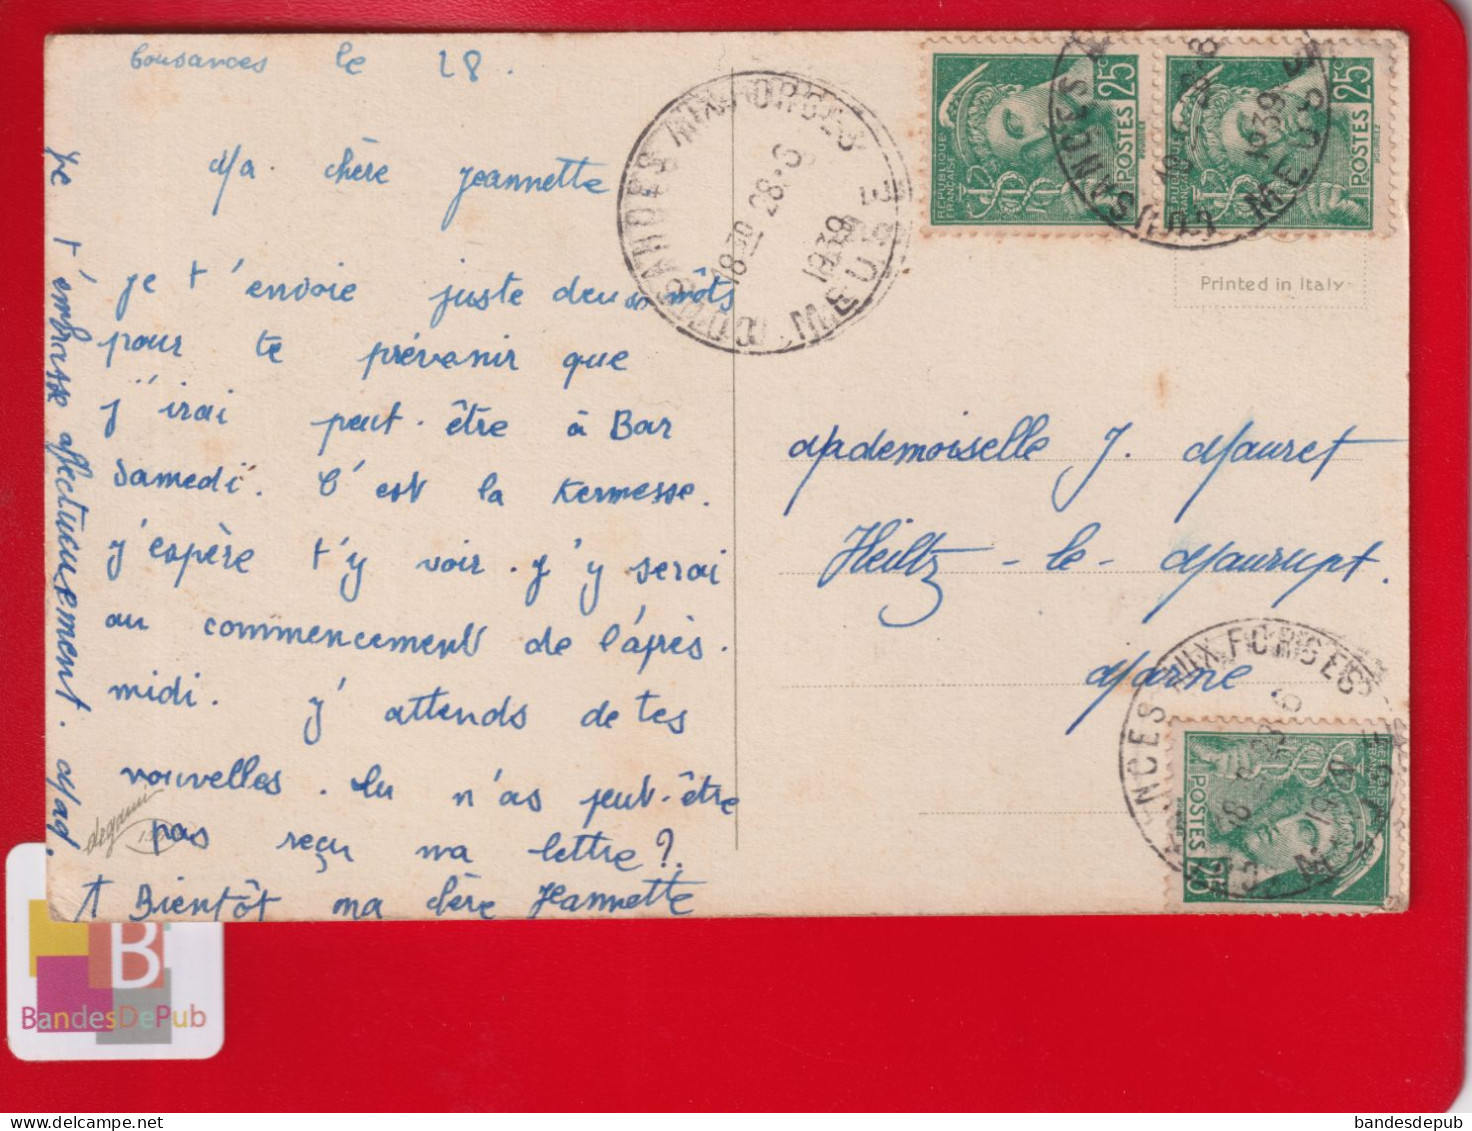 Cousances le 28.
Ma chère Jeannette
Je t'envoie juste deux môts
pour te prévenir que
j'irai peut-être à Bar
samedi. C'est la Kermesse.
J'espère t'y voir. J'y serai
au commencement de l'après-
midi. J'attends de tes
nouvelles. Tu n'as peut-être
pas reçu ma lettre?
A Bientôt ma chère Jeannette
Je t'embrasse affectueusement. Mad.
degami
COUSANCES AUX FORGES
18 30 28-6
1939
MEUSE
REPUBLIQUE FRANÇAISE
25c
POSTES
REPUBLIQUE FRANÇAISE
25c
POSTES
COUSANCES
1939
MEUSE
Printed in Italy
Mademoiselle J. Mauret
Heiltz-le-Maurupt.
Marne
COUSANCES AUX FORGES
MEUSE
POSTES
25c
B
BandesDePub
bandesdepub